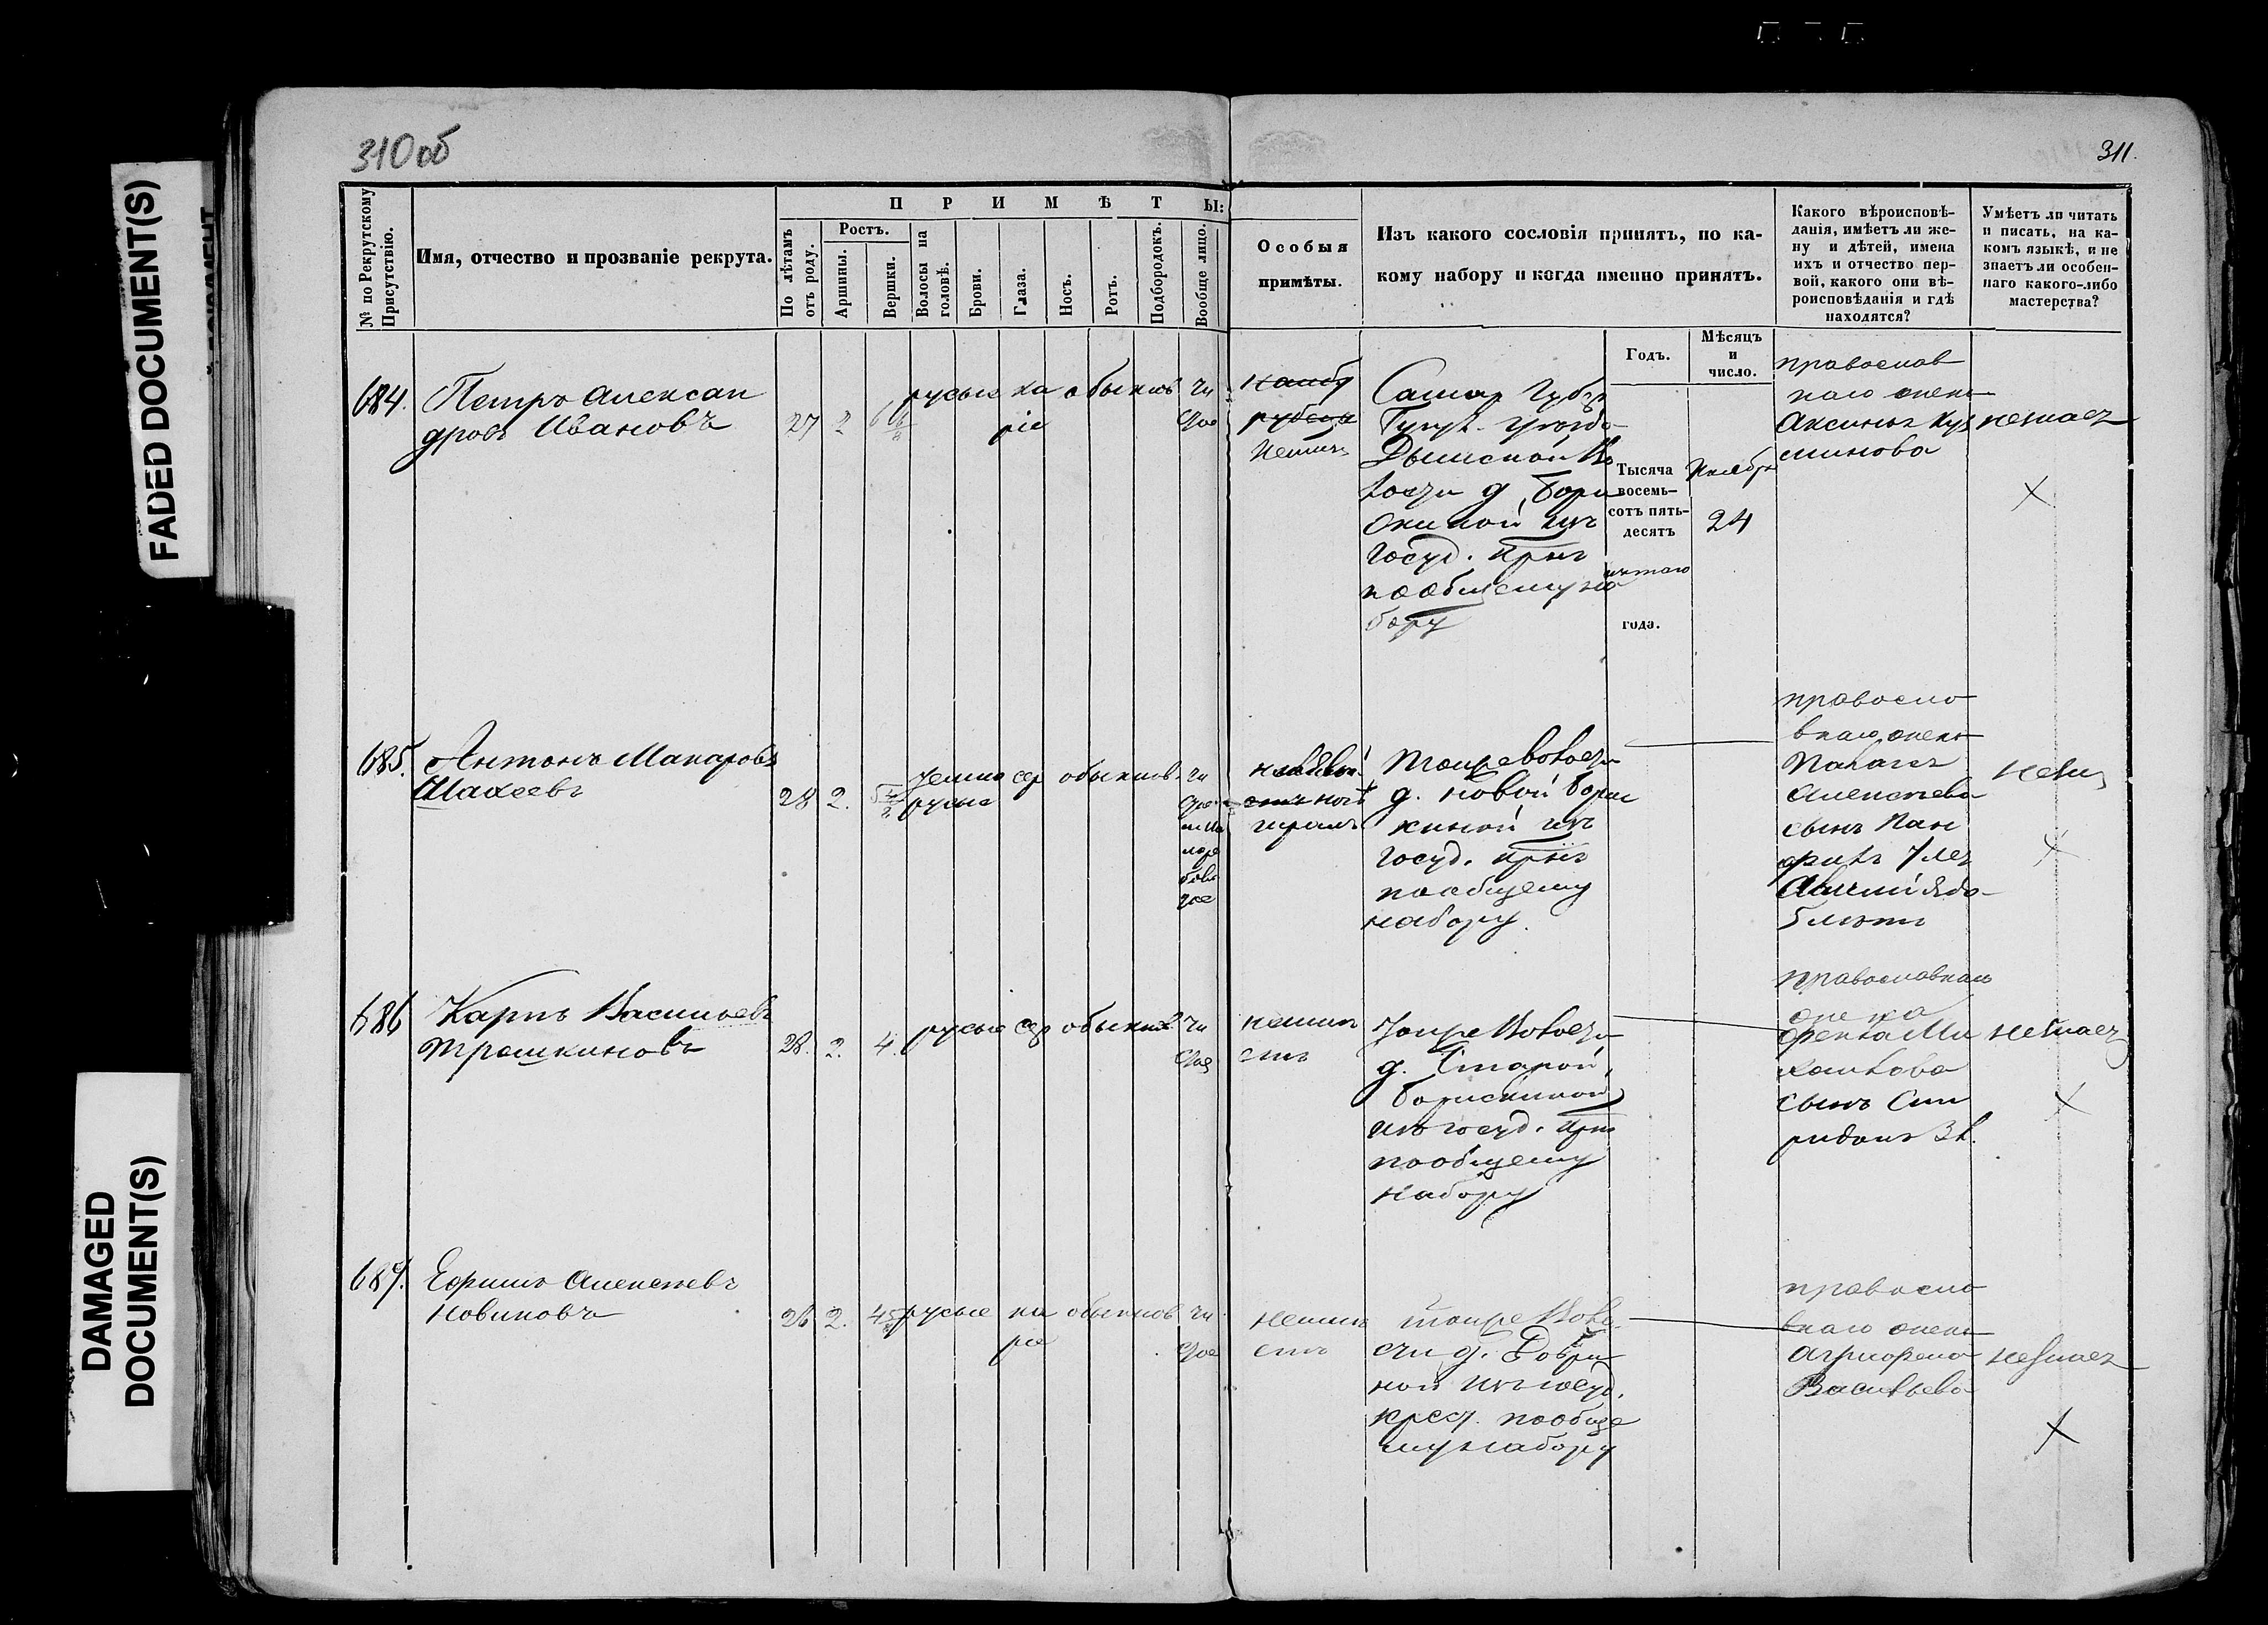 310 об
311.
FADED DOCUMENT(S)
DAMAGED
DOCUMENT(S)
№ по Рекрутскому
Присутствію.
Имя, отчество и прозваніе рекрута.
П Р И М Ѣ Т Ы:
По лѣтамъ
отъ роду.
Ростъ.
Аршины.
Вершки.
Волосы на
головѣ.
Брови.
Глаза.
Носъ.
Ротъ.
Подбородокъ.
Вообще лицо.
Особыя
примѣты.
Изъ какого сословія принятъ, по ка-
кому набору и когда именно принятъ.
Какого вѣроисповѣ-
данія, имѣетъ ли же-
ну и дѣтей, имена
ихъ и отчество пер-
вой, какого они вѣ-
роисповѣданія и гдѣ
находятся?
Умѣетъ ли читать
и писать, на ка-
комъ языкѣ, и не
знаетъ ли особен-
наго какого-либо
мастерства?
Годъ.
Мѣсяцъ
и
число.
684.
Петръ Алексан
дровъ Ивановъ
27
2
русые
ка
ріе
обыкнов
чи
стое
Самар Губер
уѣзда
д. Бори
скиной изъ
Госуд. крест
по общему на
бору
Тысяча
восемь-
сотъ пять-
десятъ
пятаго
года.
Ноября
24
православ
наго жена
Аксинья Куз
минова
незнаетъ
685.
Антонъ Макаровъ
Махеевъ
28
2.
темно
русые
сер
обыкнов.
чи
стое
на левой
ногѣ
шрамъ
Тойже Волости
д. Новой Борис
киной изъ
Госуд. крест
по общему
набору.
правосла
внаго жена
Алексеева
сынъ
7 лет
5 лѣтъ
незн
686
Карпъ Васильевъ
Трошкиновъ
28.
2.
4.
русые
сер
обыкнов
чи
стое
неимѣ
етъ
Тойже Волости
д. Старой
Борискиной
изъ госуд. крест
по общему
набору
православнаго
жена
Фекла Ми
хайлова
сынъ Спи
ридонъ 3 л.
незнаетъ
687.
Ефимъ Алексѣевъ
Новиковъ
26
2.
русые
ка
ріе
обыкнов
чи
стое
неимѣ
етъ
тойже Воло
сти д. Добри
ной изъ госуд.
крест. по обще
му набору
правосла
внаго жена
Агриофена
Васильева
незнаетъ